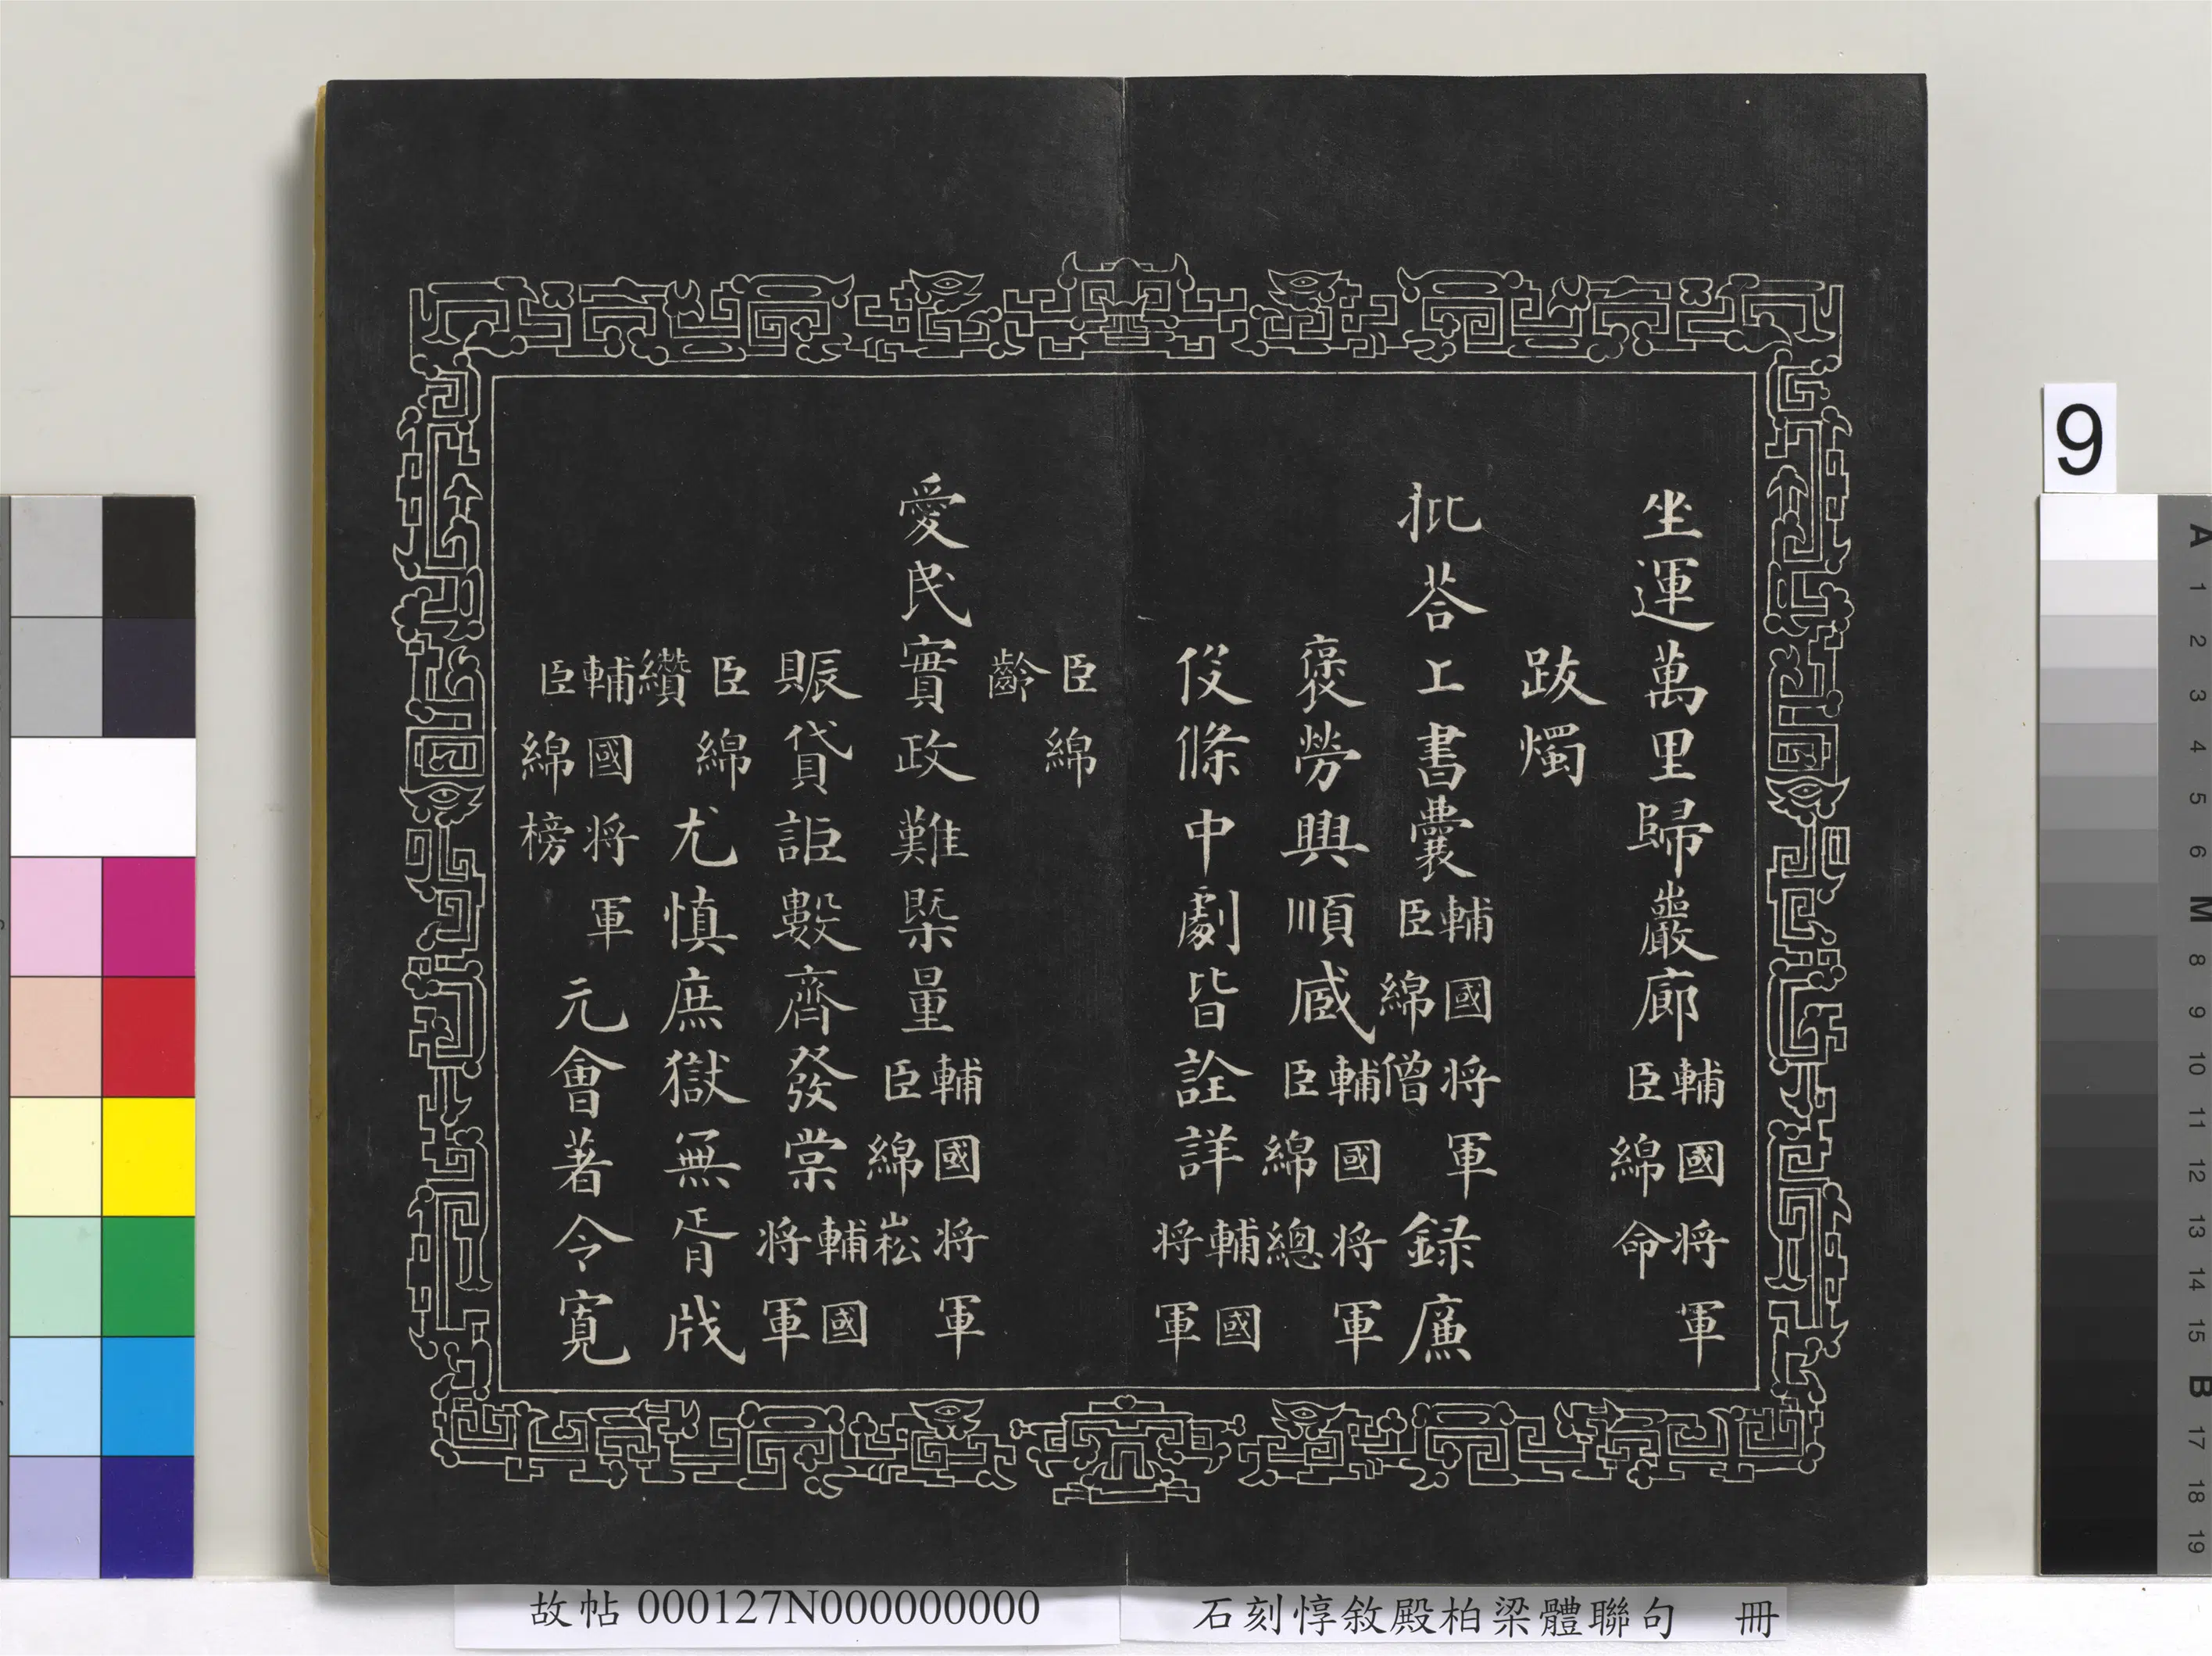 坐運萬里歸巖廊輔國将軍臣綿命
跋燭
批荅上書囊輔國将軍臣綿僧錄廉
褒勞興順臧輔國将軍臣綿總
伇條中劇皆詮詳輔國将軍
臣綿齡
愛民實政難槩量輔國将軍臣綿崧
賑貸詎數齊發棠輔國将軍
臣綿纘尤慎庶獄無胥戕
輔國将軍臣綿榜元會著令寬
故帖 000127N000000000
石刻惇敘殿柏梁體聯句 冊
9
A
1
2
3
4
5
6
M
8
9
10
11
12
13
14
15
B
17
18
19